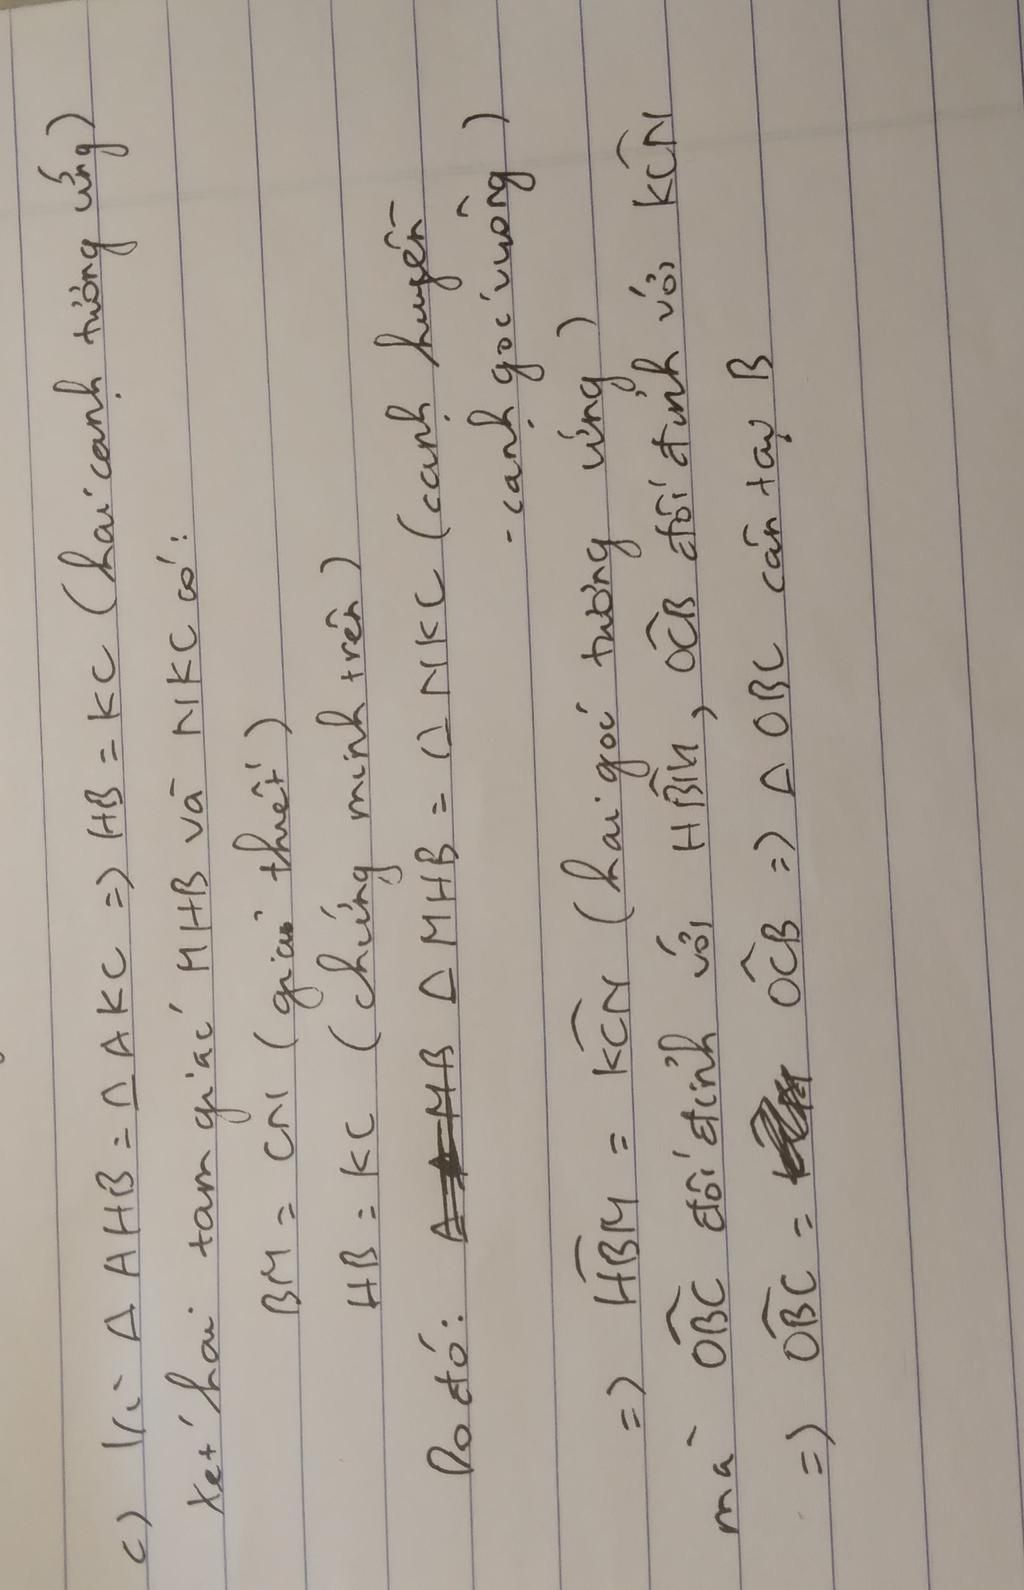 c) Vì △AHB = △AKC => HB = KC (hai cạnh tương ứng)
Xét hai tam giác MHB và NKC có:
BM = CN (giả thiết)
HB = KC (chứng minh trên)
Do đó: △MHB = △NKC (cạnh huyền
- cạnh góc vuông)
=> HBM̂ = KCN̂ (hai góc tương ứng)
mà OBĈ đối đỉnh với HBM̂, OCB̂ đối đỉnh với KCN̂
=> OBĈ = OCB̂ => △OBC cân tại B